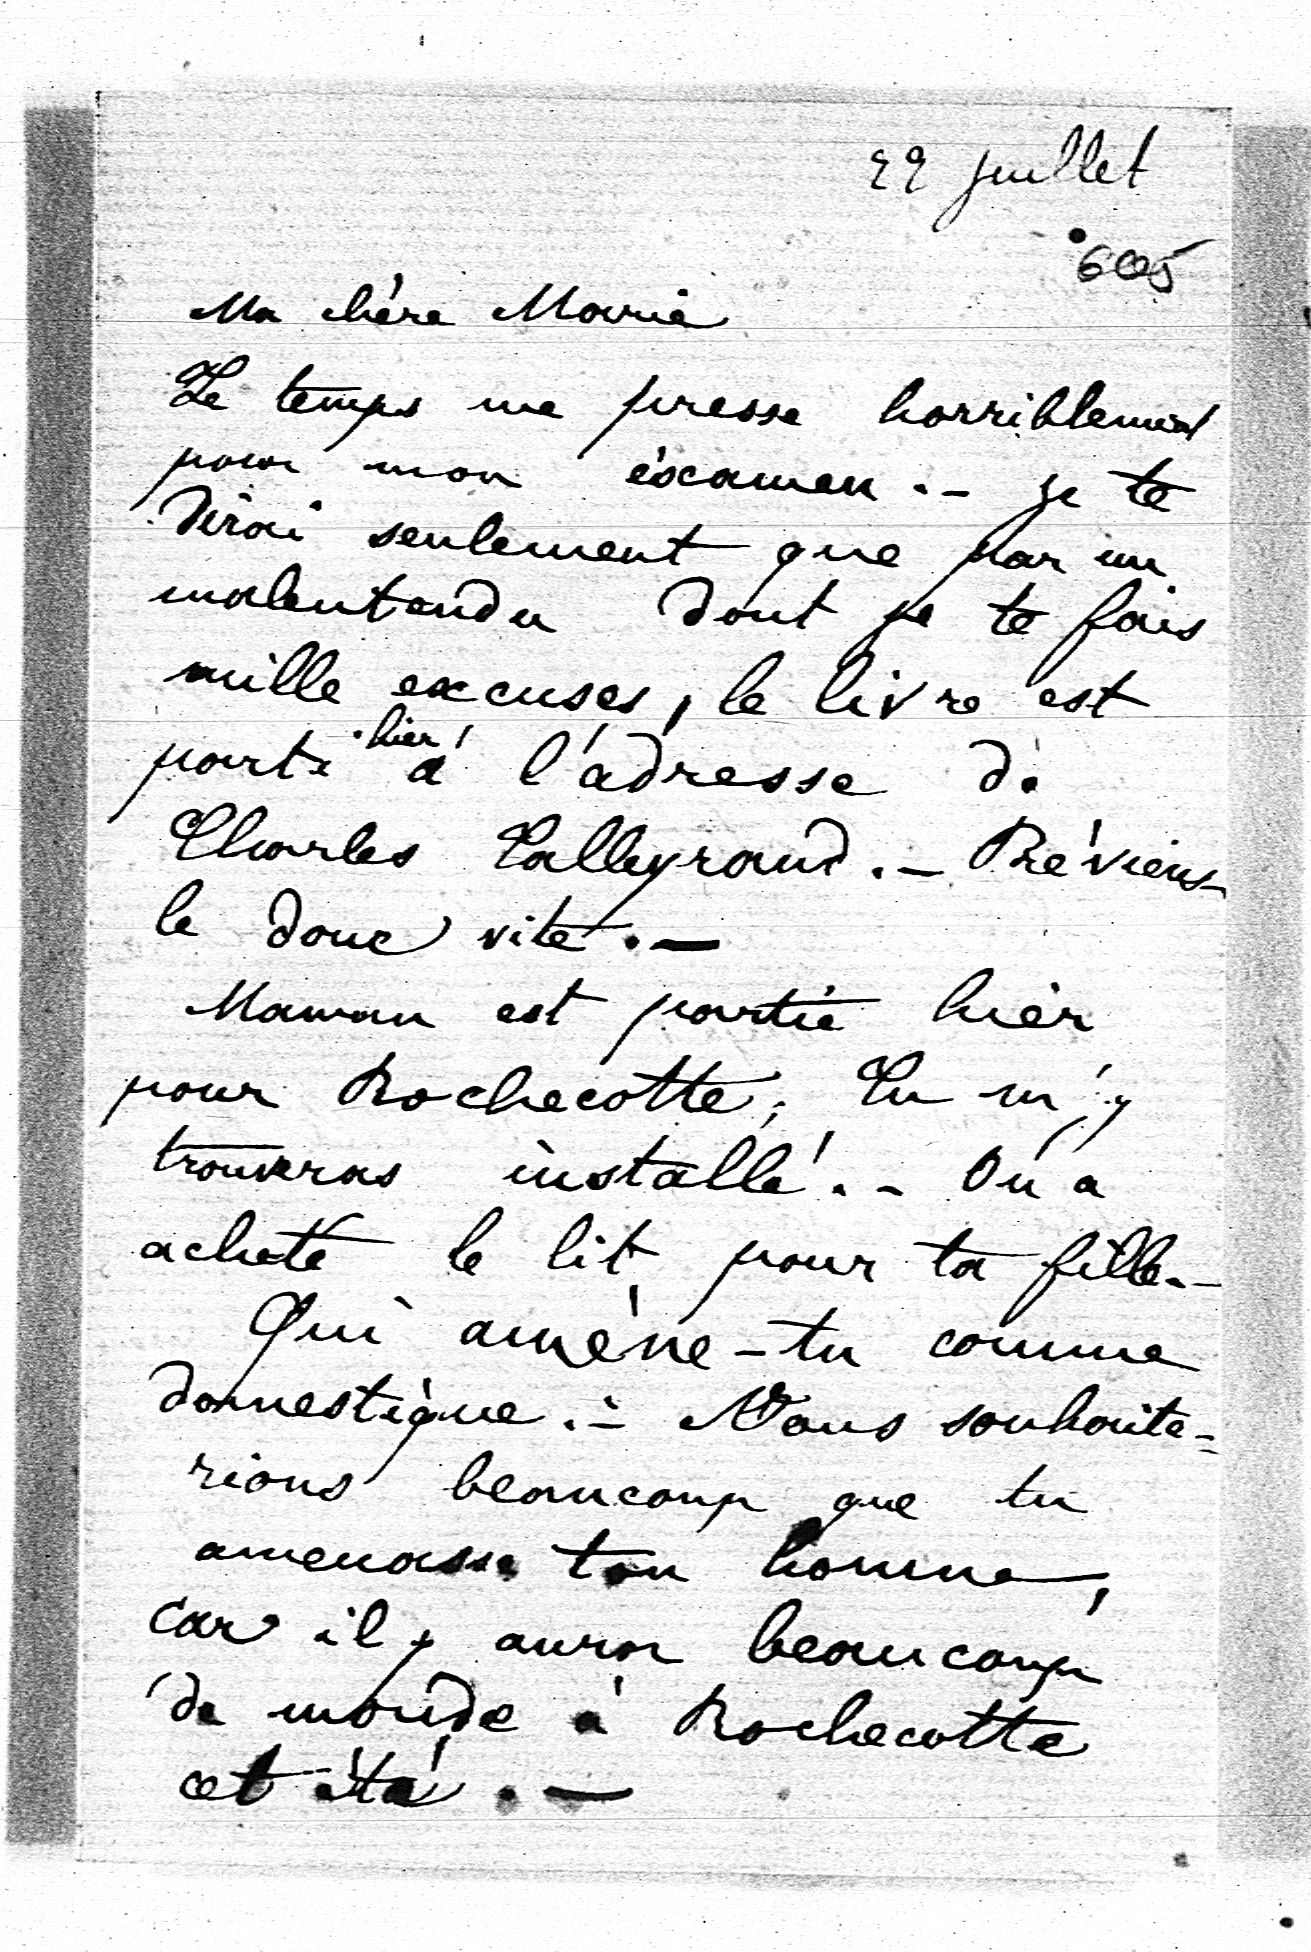 22 juillet
605
Ma chère Marie
Le temps me presse horriblement
pour mon éxamen. - je te
dirai seulement que par un
malentendu dont je te fais
mille excuses, le livre est
parti hier à l'adresse de
Charles Talleyrand. - Préviens-
le donc vite. -
Maman est partie hier
pour Rochecotte; Tu m'y
trouveras installé. - On a
acheté le lit pour ta fille. -
Qui amène-tu comme
domestique. - Nous souhaite-
rions beaucoup que tu
amenasse ton homme,
car il y aura beaucoup
de monde à Rochecotte
cet été. -